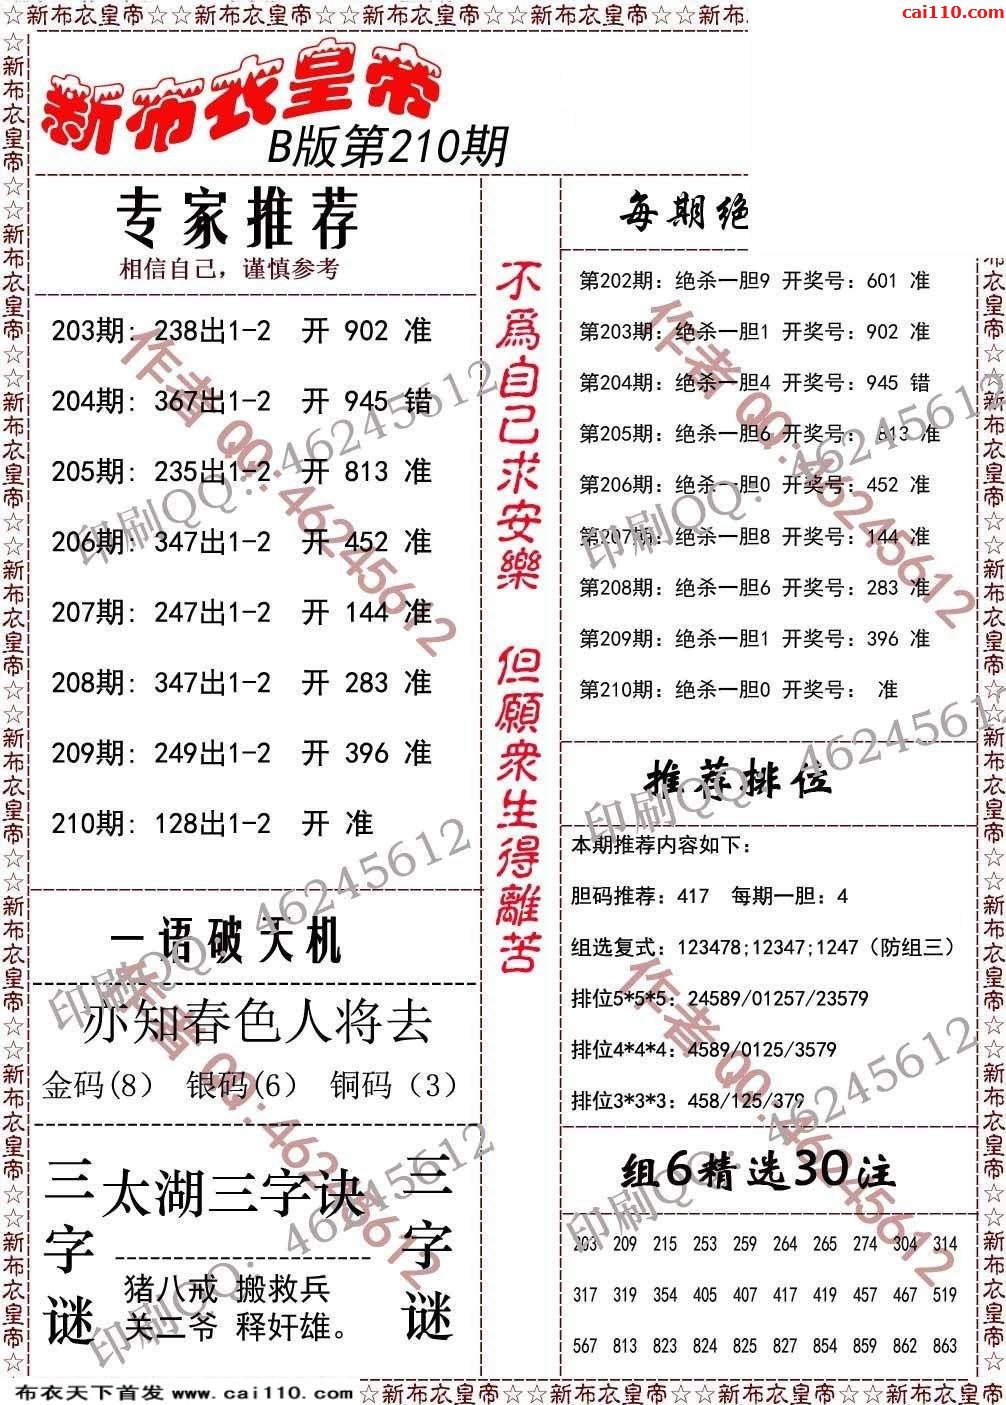 ☆新布衣皇帝☆☆新布衣皇帝☆☆新布衣皇帝☆☆新布衣皇帝☆☆新布
cai110.com
新布衣皇帝
B版第210期
专家推荐
相信自己，谨慎参考
203期: 238出1-2 开 902 准
204期: 367出1-2 开 945 错
205期: 235出1-2 开 813 准
206期: 347出1-2 开 452 准
207期: 247出1-2 开 144 准
208期: 347出1-2 开 283 准
209期: 249出1-2 开 396 准
210期: 128出1-2 开 准
一语破天机
亦知春色人将去
金码(8) 银码(6) 铜码（3）
三字谜
太湖三字诀
猪八戒 搬救兵
关二爷 释奸雄。
三字谜
不爲自己求安樂 但願衆生得離苦
每期绝
第202期：绝杀一胆9 开奖号：601 准
第203期：绝杀一胆1 开奖号：902 准
第204期：绝杀一胆4 开奖号：945 错
第205期：绝杀一胆6 开奖号： 813 准
第206期：绝杀一胆0 开奖号：452 准
第207期：绝杀一胆8 开奖号：144 准
第208期：绝杀一胆6 开奖号：283 准
第209期：绝杀一胆1 开奖号：396 准
第210期：绝杀一胆0 开奖号： 准
推荐排位
本期推荐内容如下：
胆码推荐：417 每期一胆：4
组选复式：123478;12347;1247（防组三）
排位5*5*5：24589/01257/23579
排位4*4*4：4589/0125/3579
排位3*3*3：458/125/379
组6精选30注
203 209 215 253 259 264 265 274 304 314
317 319 354 405 407 417 419 457 467 519
567 813 823 824 825 827 854 859 862 863
作者QQ:46245612
印刷QQ：46245612
作者QQ:46245612
印刷QQ：46245612
印刷QQ：46245612
作者QQ:46245612
印刷QQ：46245612
作者QQ:46245612
印刷QQ：46245612
印刷QQ：46245612
布衣天下首发 www.cai110.com
☆新布衣皇帝☆☆新布衣皇帝☆☆新布衣皇帝☆☆新布衣皇帝☆